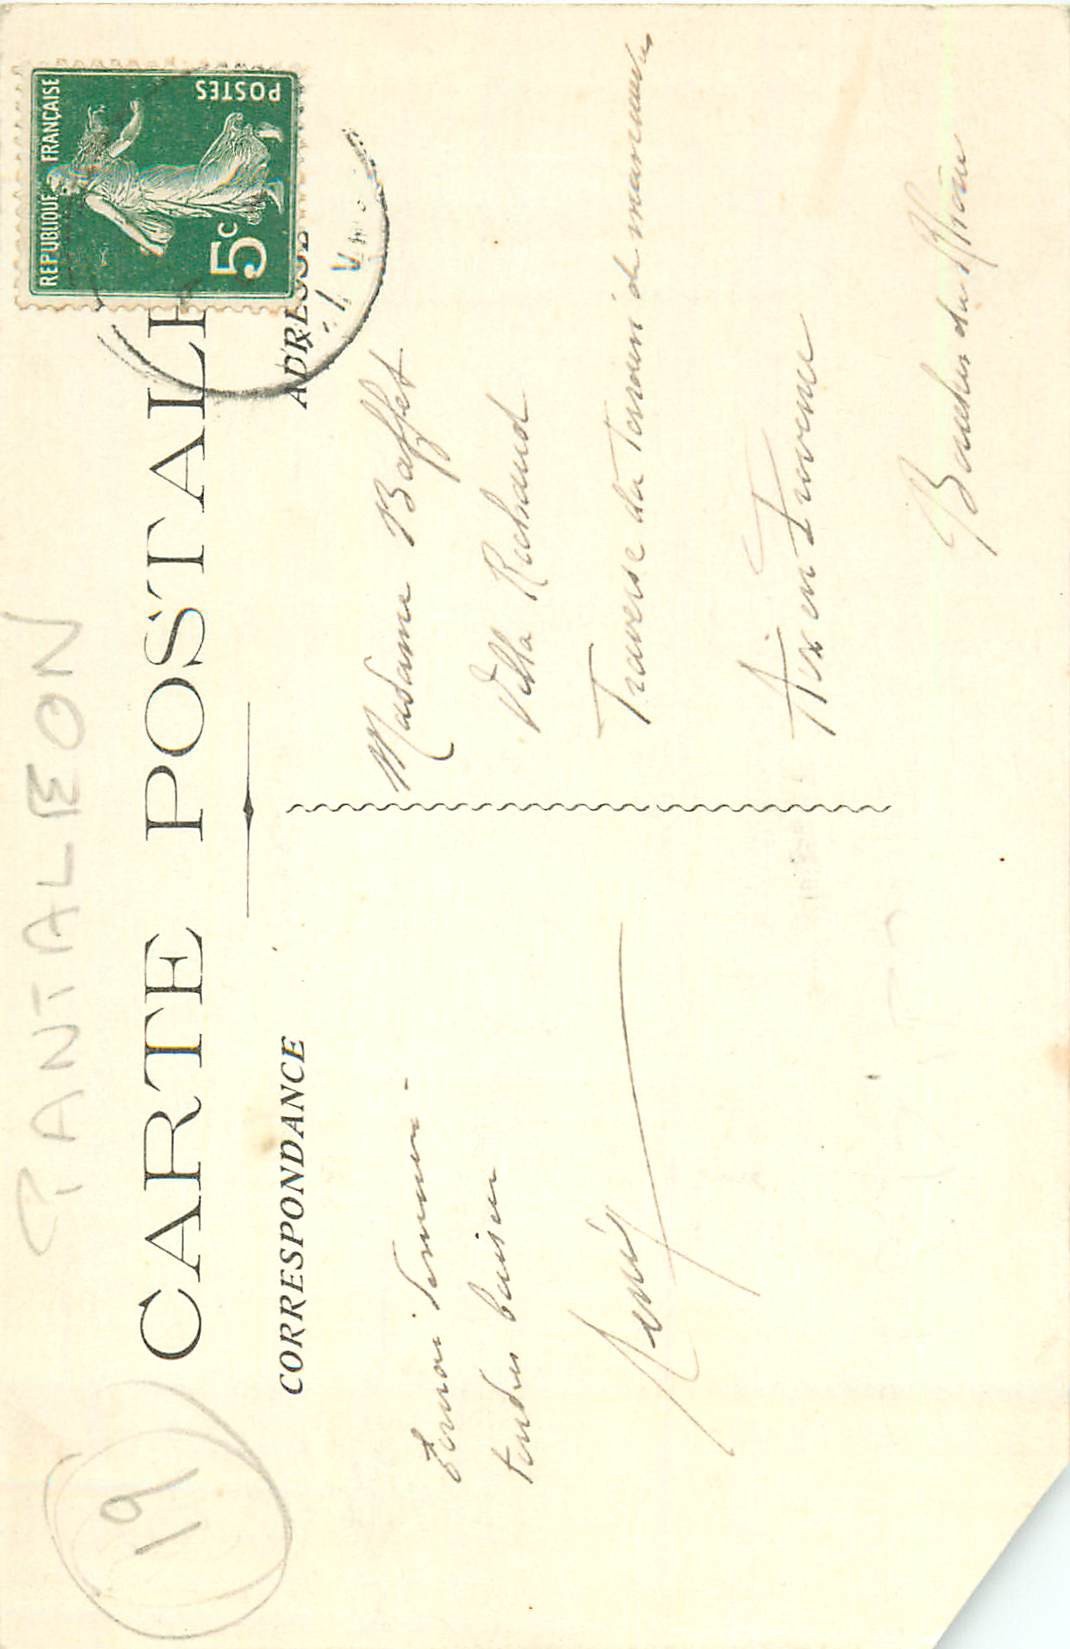 PANTALEON
19
CARTE POSTALE
CORRESPONDANCE
ADRESSE
REPUBLIQUE FRANÇAISE
POSTES
5c
Ecrirai demain -
tendres baisers
Madame Baffet
Villa Richaud
Traverse du terrain de manoeuvres
Aix en Provence
Bouches du Rhône